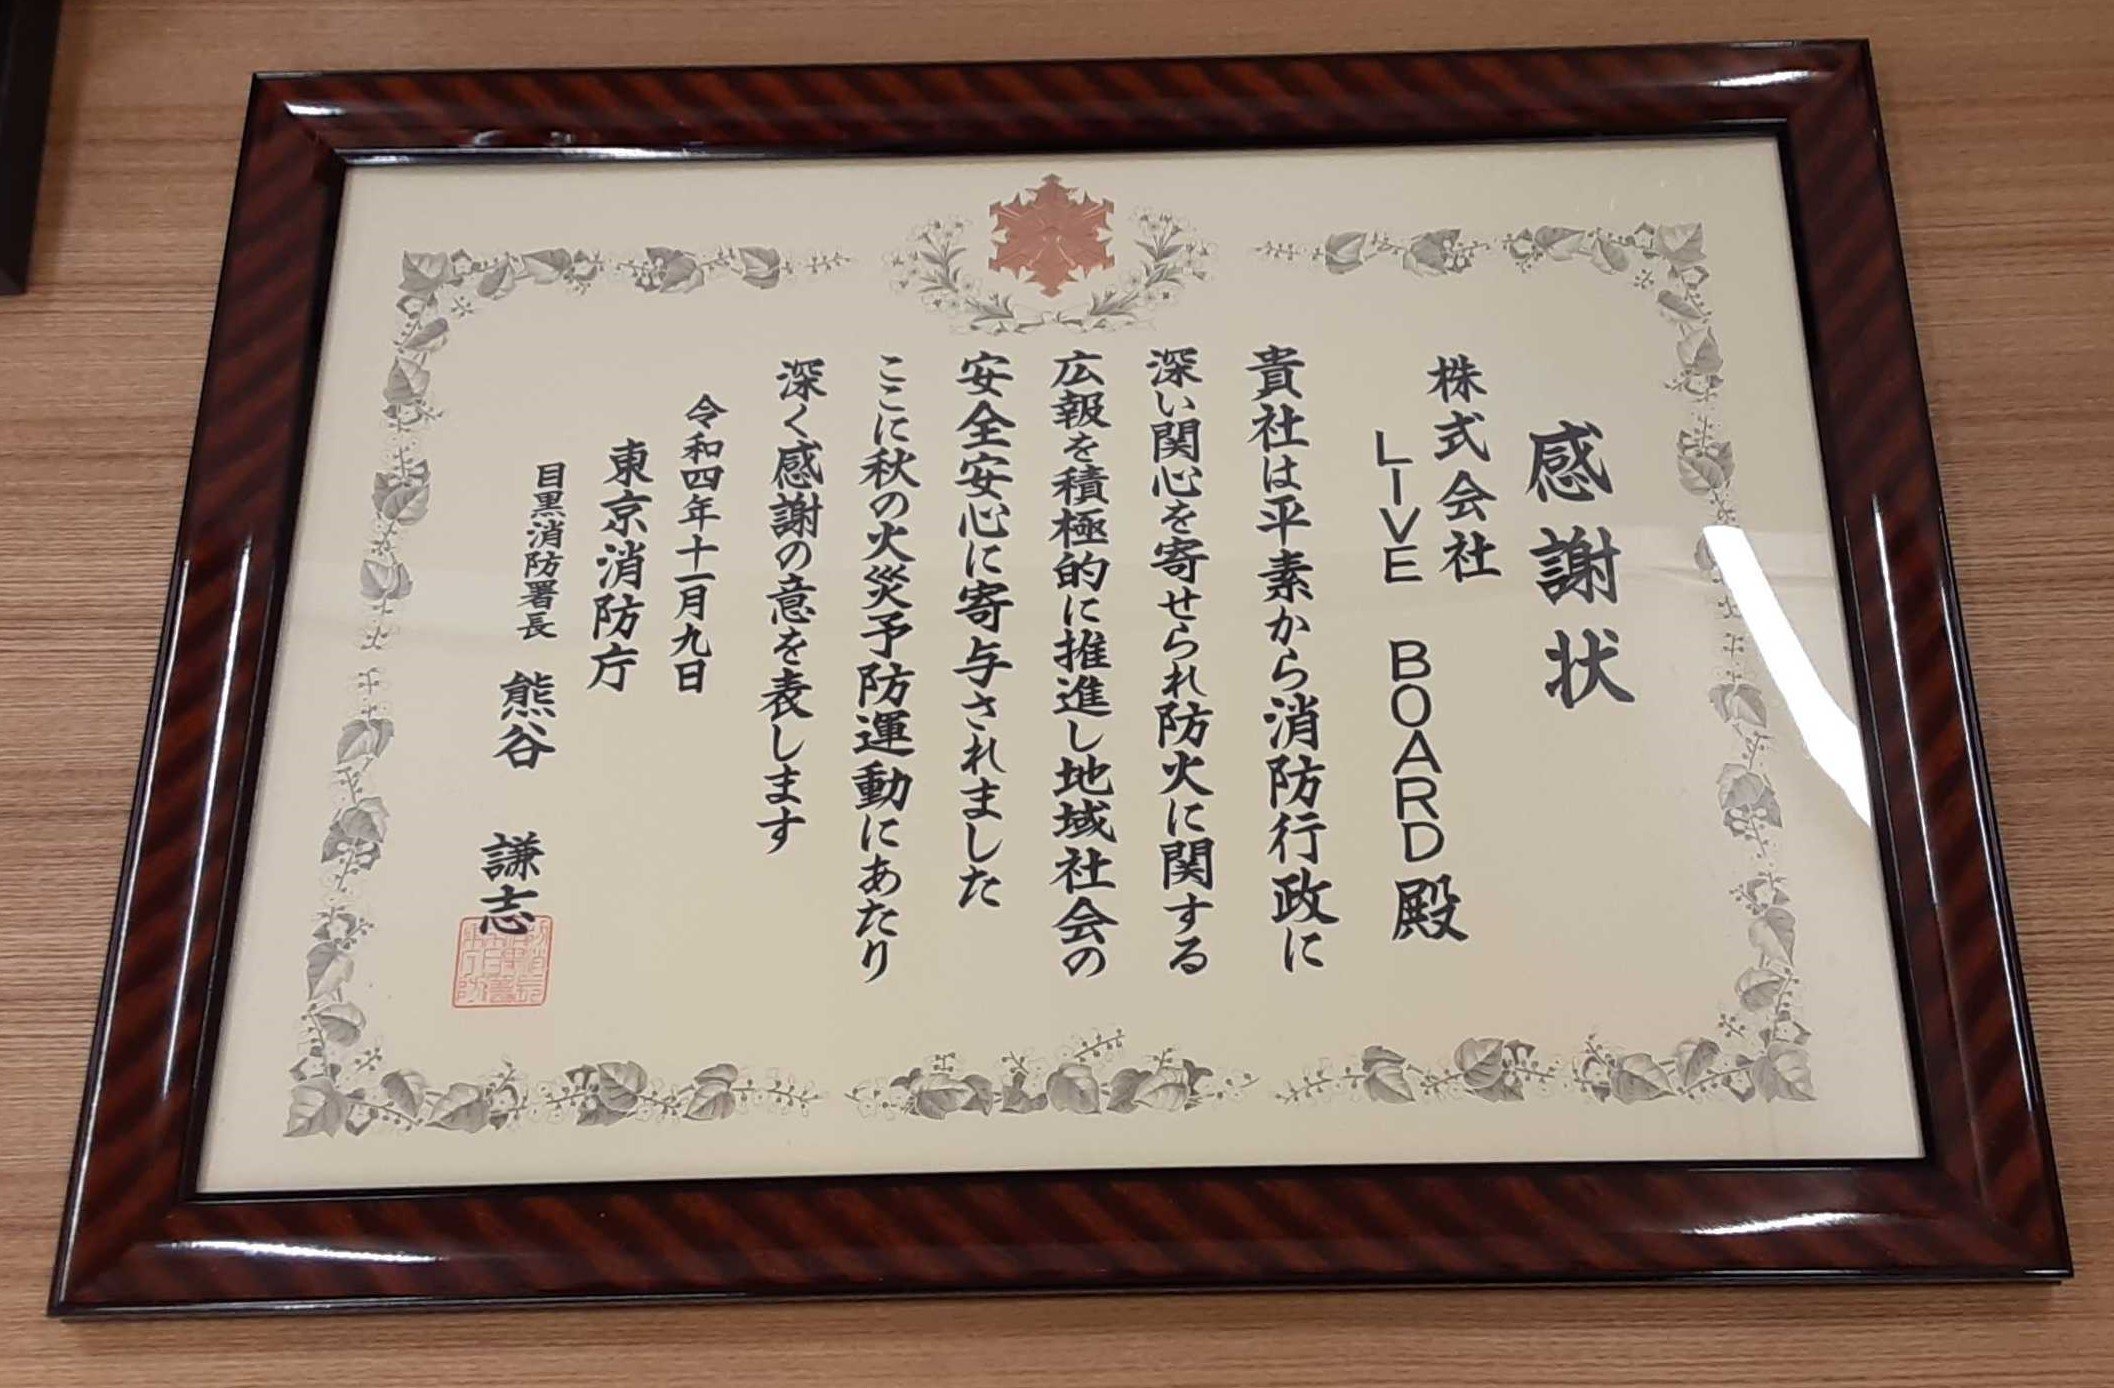 感謝状
株式会社
LIVE BOARD 殿
貴社は平素から消防行政に
深い関心を寄せられ防火に関する
広報を積極的に推進し地域社会の
安全安心に寄与されました
ここに秋の火災予防運動にあたり
深く感謝の意を表します
令和四年十一月九日
東京消防庁
目黒消防署長 熊谷 謙志